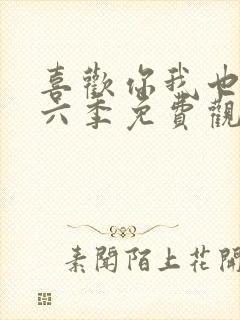 喜歡你我也
六季免費觀
素聞陌上花開